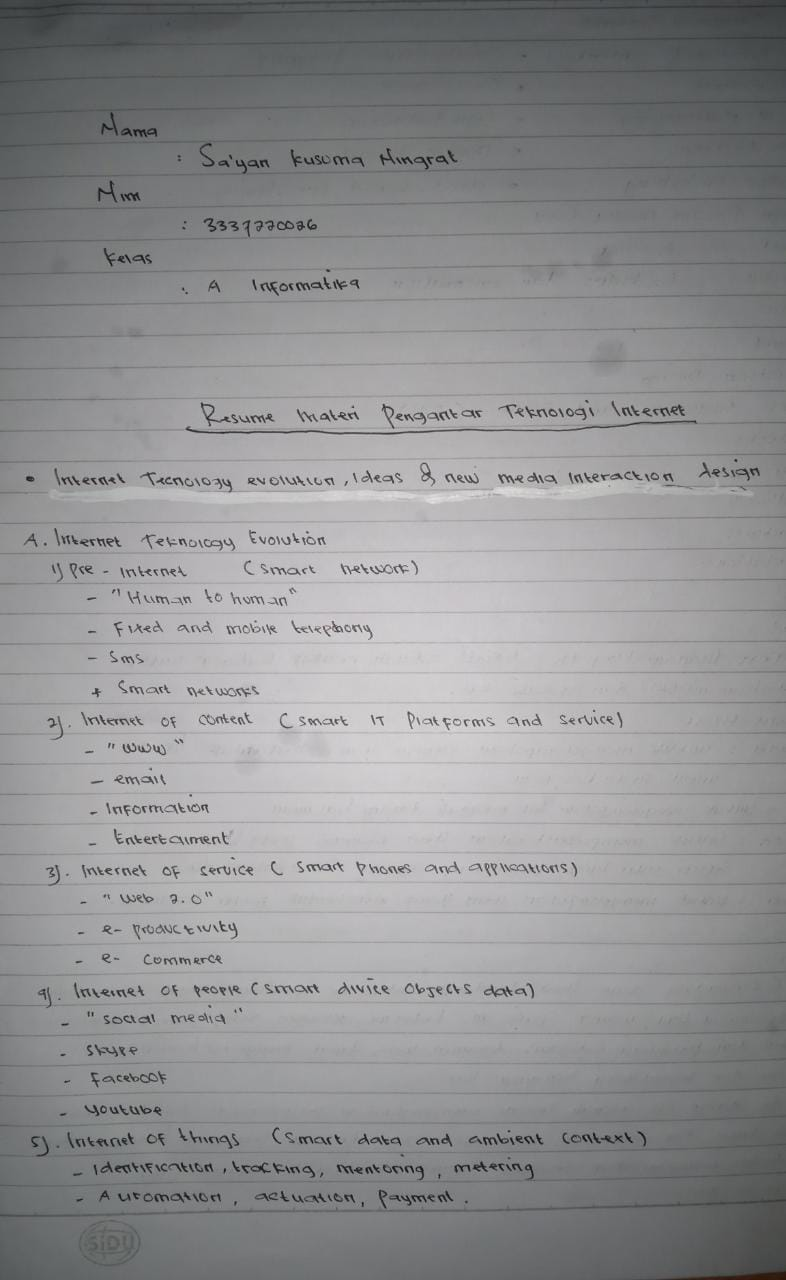 Nama
: Sa'yan Kusuma Ningrat
Nim
: 3337220026
Kelas
: A Informatika
Resume Materi Pengantar Teknologi Internet
• Internet Tecnology evolution, Ideas & new media Interaction design
A. Internet Teknology Evolution
1) Pre - Internet (smart network)
- "Human to human"
- Fixed and mobile telephony
- Sms
+ Smart networks
2). Internet of content (smart IT Platforms and service)
- "www"
- email
- Information
- Entertaiment
3). Internet of service (smart phones and applications)
- "Web 2.0"
- e- productivity
- e- commerce
4). Internet of people (smart divice objects data)
- "social media"
- Skype
- Facebook
- Youtube
5). Internet of things (smart data and ambient context)
- Identification, tracking, mentoring, metering
- Automation, actuation, Payment.
SiDU